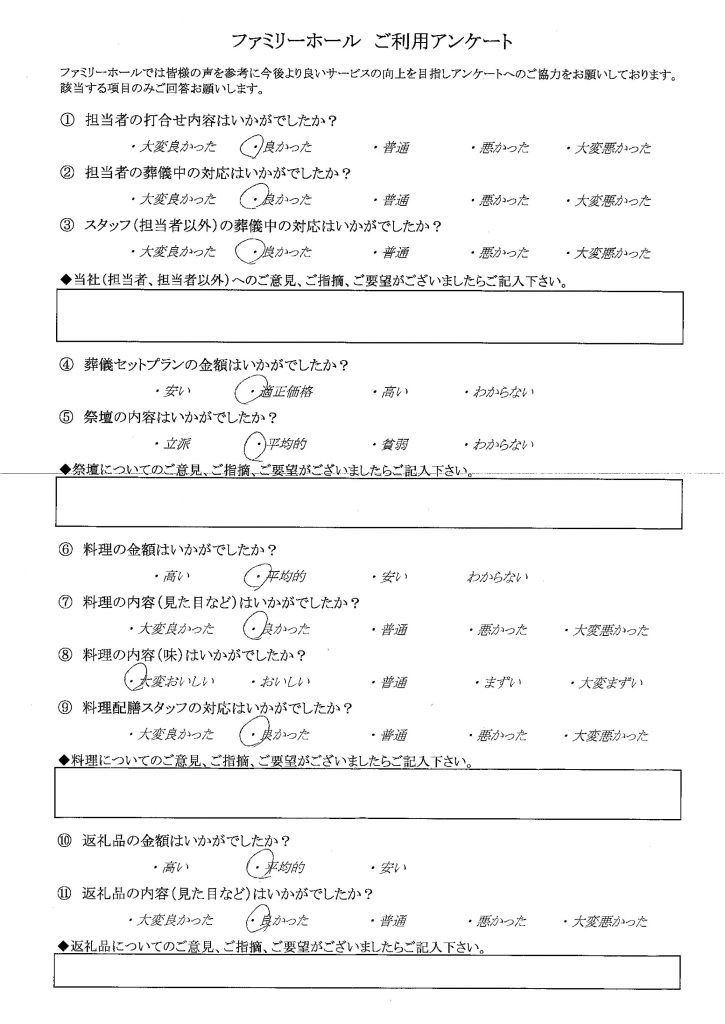 ファミリーホール ご利用アンケート
ファミリーホールでは皆様の声を参考に今後より良いサービスの向上を目指しアンケートへのご協力をお願いしております。
該当する項目のみご回答お願いします。
① 担当者の打合せ内容はいかがでしたか？
・大変良かった ・良かった ・普通 ・悪かった ・大変悪かった
② 担当者の葬儀中の対応はいかがでしたか？
・大変良かった ・良かった ・普通 ・悪かった ・大変悪かった
③ スタッフ（担当者以外）の葬儀中の対応はいかがでしたか？
・大変良かった ・良かった ・普通 ・悪かった ・大変悪かった
◆当社（担当者、担当者以外）へのご意見、ご指摘、ご要望がございましたらご記入下さい。
④ 葬儀セットプランの金額はいかがでしたか？
・安い ・適正価格 ・高い ・わからない
⑤ 祭壇の内容はいかがでしたか？
・立派 ・平均的 ・貧弱 ・わからない
◆祭壇についてのご意見、ご指摘、ご要望がございましたらご記入下さい。
⑥ 料理の金額はいかがでしたか？
・高い ・平均的 ・安い わからない
⑦ 料理の内容（見た目など）はいかがでしたか？
・大変良かった ・良かった ・普通 ・悪かった ・大変悪かった
⑧ 料理の内容（味）はいかがでしたか？
・大変おいしい ・おいしい ・普通 ・まずい ・大変まずい
⑨ 料理配膳スタッフの対応はいかがでしたか？
・大変良かった ・良かった ・普通 ・悪かった ・大変悪かった
◆料理についてのご意見、ご指摘、ご要望がございましたらご記入下さい。
⑩ 返礼品の金額はいかがでしたか？
・高い ・平均的 ・安い
⑪ 返礼品の内容（見た目など）はいかがでしたか？
・大変良かった ・良かった ・普通 ・悪かった ・大変悪かった
◆返礼品についてのご意見、ご指摘、ご要望がございましたらご記入下さい。